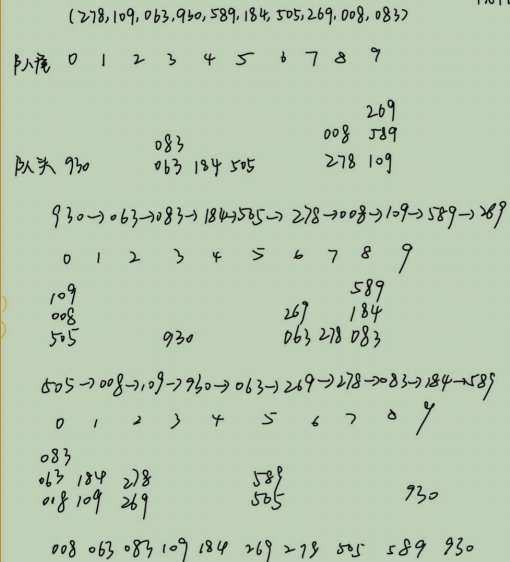 (278,109,063,930,589,184,505,269,008,083)
队尾 0 1 2 3 4 5 6 7 8 9
269
083 008 589
队头 930 063 184 505 278 109
930→063→083→184→505→278→008→109→589→269
0 1 2 3 4 5 6 7 8 9
109 589
008 269 184
505 930 063 278 083
505→008→109→930→063→269→278→083→184→589
0 1 2 3 4 5 6 7 8 9
083
063 184 278 589
008 109 269 505 930
008 063 083 109 184 269 278 505 589 930